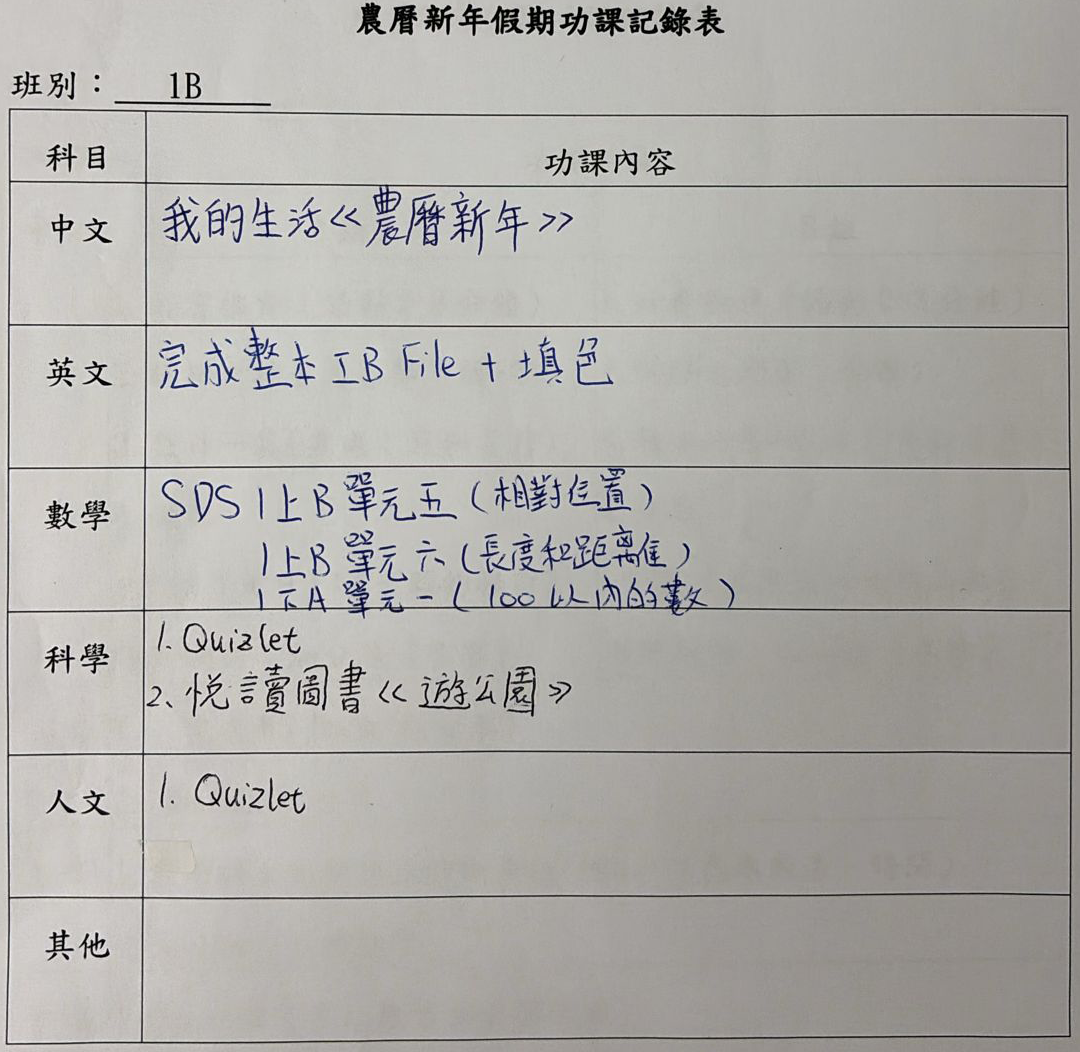 農曆新年假期功課記錄表
班別： 1B
科目 功課內容
中文 我的生活《農曆新年》
英文 完成整本 IB File + 填色
數學 SDS 1上B 單元五（相對位置）
1上B 單元六（長度和距離）
1下A 單元一（100以內的數）
科學 1. Quizlet
2、悅讀圖書《遊公園》
人文 1. Quizlet
其他